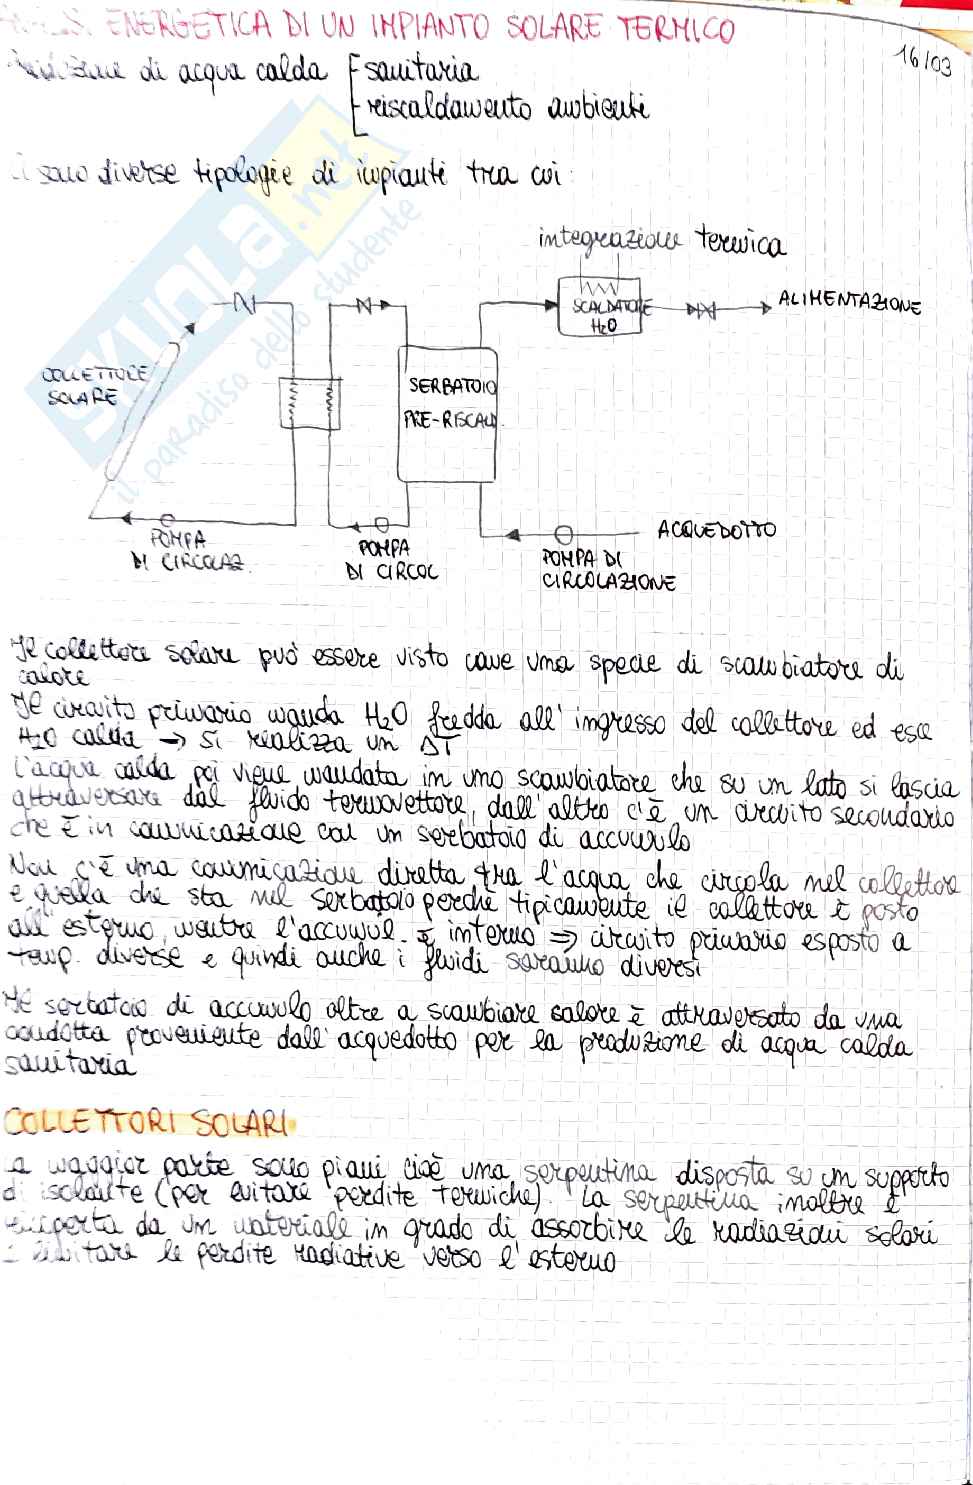 ENERGETICA DI UN IMPIANTO SOLARE TERMICO
16/03
di acqua calda sanitaria
riscaldamento ambienti
Ci sono diverse tipologie di impianti tra cui:
integrazione termica
SCALDATORE
H2O
ALIMENTAZIONE
COLLETTORE
SOLARE
SERBATOIO
PRE-RISCALD.
ACQUEDOTTO
POMPA
DI CIRCOLAZ.
POMPA
DI CIRCOL
POMPA DI
CIRCOLAZIONE
SKUOLA.net
il paradiso dello studente
Il collettore solare può essere visto come una specie di scambiatore di
calore
Il circuito primario manda H2O fredda all'ingresso del collettore ed esce
H2O calda → si realizza un ΔT
L'acqua calda poi viene mandata in uno scambiatore che su un lato si lascia
attraversare dal fluido termovettore, dall'altro c'è un circuito secondario
che è in comunicazione con un serbatoio di accumulo
Non c'è una comunicazione diretta tra l'acqua che circola nel collettore
e quella che sta nel serbatoio perchè tipicamente il collettore è posto
all'esterno, mentre l'accumul. è interno ⇒ circuito primario esposto a
temp. diverse e quindi anche i fluidi saranno diversi
Il serbatoio di accumulo oltre a scambiare calore è attraversato da una
condotta proveniente dall'acquedotto per la produzione di acqua calda
sanitaria
COLLETTORI SOLARI
La maggior parte sono piani cioè una serpentina disposta su un supporto
di isolante (per evitare perdite termiche). La serpentina inoltre è
ricoperta da un materiale in grado di assorbire le radiazioni solari
e limitare le perdite radiative verso l'esterno